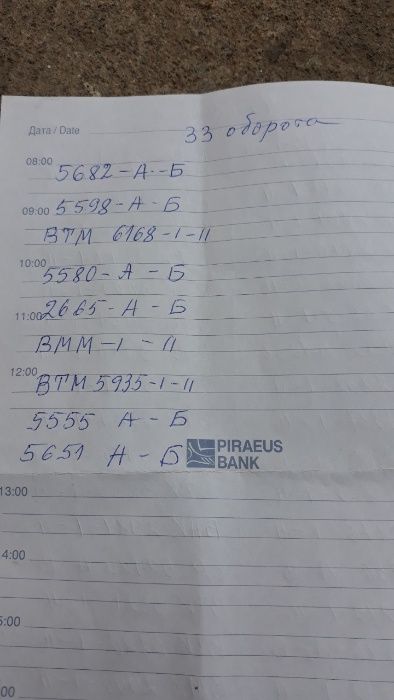 Дата / Date
33 оборота
08:00
5682-А-Б
09:00 5598-А-Б
ВТМ 6168-I-II
10:00
5580-А-Б
11:00 2665-А-Б
ВММ-I-II
12:00
ВТМ 5935-I-II
5555 А-Б
5651 А-Б
PIRAEUS
BANK
13:00
4:00
5:00
00